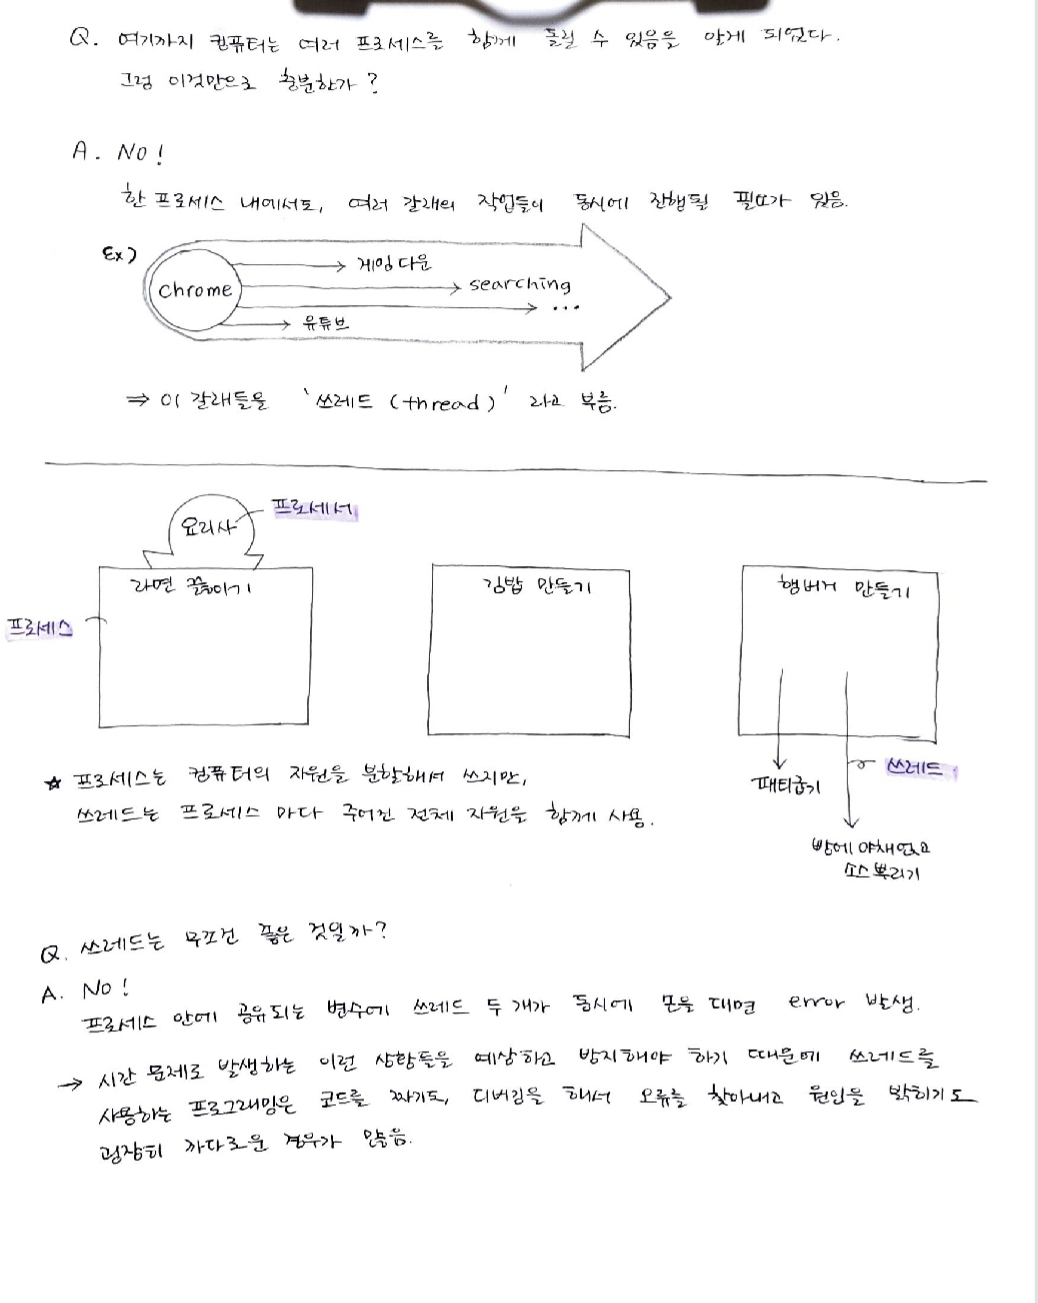 Q. 여기까지 컴퓨터는 여러 프로세스를 함께 돌릴 수 있음을 알게 되었다.
그럼 이것만으로 충분한가?
A. No!
한 프로세스 내에서도, 여러 갈래의 작업들이 동시에 진행될 필요가 있음.
Ex)
chrome
게임다운
searching
...
유튜브
⇒ 이 갈래들을 '쓰레드 (thread)' 라고 부름.
요리사
프로세서
라면 끓이기
김밥 만들기
햄버거 만들기
프로세스
☆ 프로세스는 컴퓨터의 자원을 분할해서 쓰지만,
쓰레드는 프로세스 마다 주어진 전체 자원을 함께 사용.
패티굽기
쓰레드
빵에 야채얹고
소스 뿌리기
Q. 쓰레드는 무조건 좋은 것일까?
A. No!
프로세스 안에 공유되는 변수에 쓰레드 두 개가 동시에 손을 대면 error 발생.
→ 시간 문제로 발생하는 이런 상황들을 예상하고 방지해야 하기 때문에 쓰레드를
사용하는 프로그래밍은 코드를 짜기도, 디버깅을 해서 오류를 찾아내고 원인을 밝히기도
굉장히 까다로운 경우가 많음.